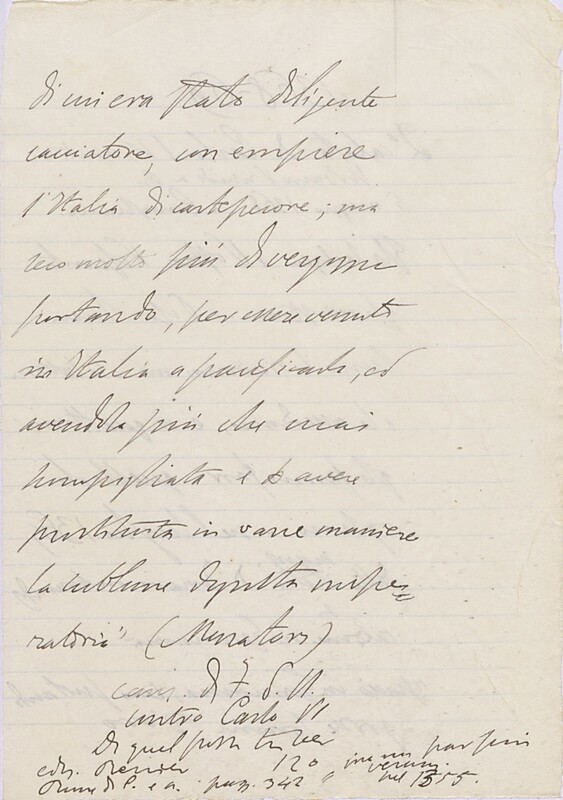 di cui era stato diligente
cacciatore, con empiere
l'Italia di cartepecore; ma
seco molto più di vergogna
portando, per essere venuto
in Italia a pacificarla, ed
avendola più che mai
scompigliata e d avere
prostituta in varie maniere
la sublime dignità impe=
ratoria" (Muratori)
canz. di F. d. U.
contro Carlo IV
Di quel possi tu ber
eds. Renier 120
Rime di F. e a. pag. 342 nel 1355.